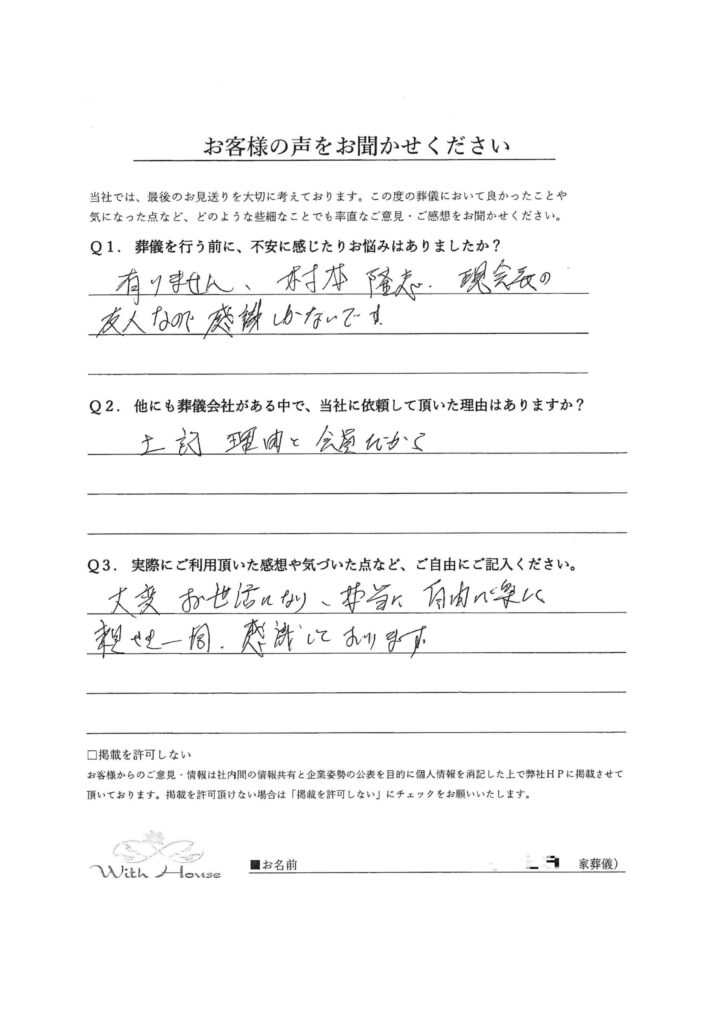 お客様の声をお聞かせください
当社では、最後のお見送りを大切に考えております。この度の葬儀において良かったことや
気になった点など、どのような些細なことでも率直なご意見・ご感想をお聞かせください。
Q1. 葬儀を行う前に、不安に感じたりお悩みはありましたか？
有りません、村本 隆志. 現会長の
友人なので感謝しかないです
Q2. 他にも葬儀会社がある中で、当社に依頼して頂いた理由はありますか？
上記 理由と 会員だから
Q3. 実際にご利用頂いた感想や気づいた点など、ご自由にご記入ください。
大変 お世話になり、本当に 自由に楽しく
親せき一同. 感謝して おります。
□掲載を許可しない
お客様からのご意見・情報は社内間の情報共有と企業姿勢の公表を目的に個人情報を消記した上で弊社HPに掲載させて
頂いております。掲載を許可頂けない場合は「掲載を許可しない」にチェックをお願いいたします。
With House
■お名前 家葬儀）